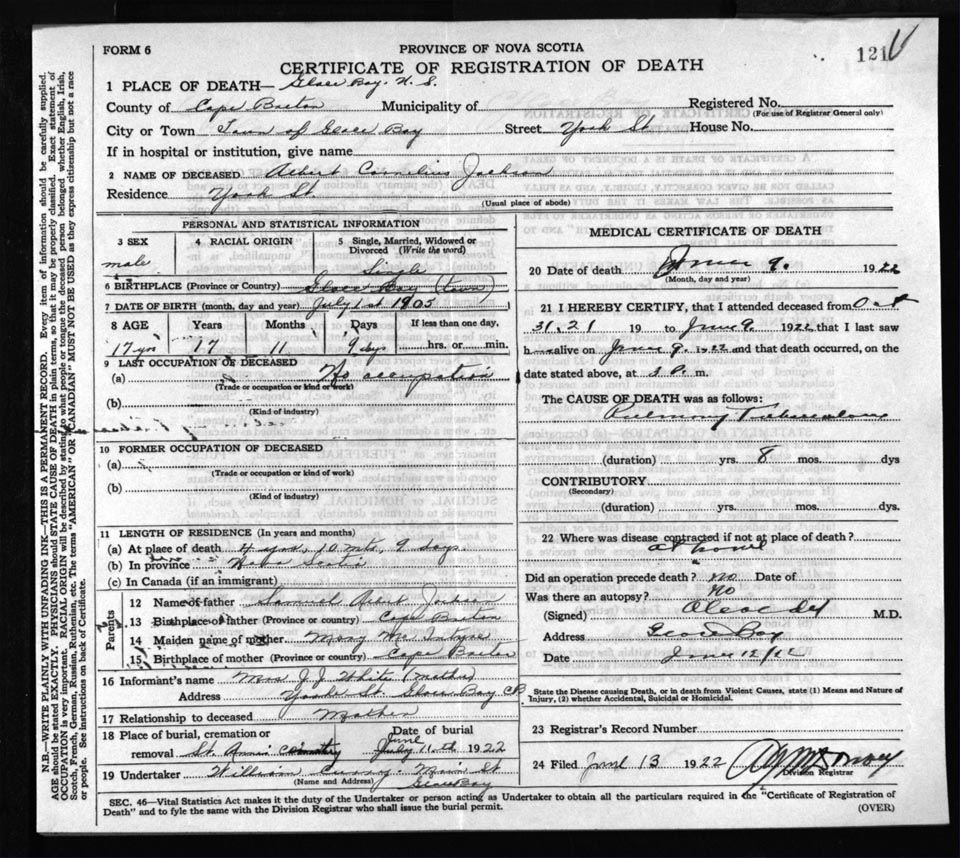 FORM 6
PROVINCE OF NOVA SCOTIA
121
CERTIFICATE OF REGISTRATION OF DEATH
1 PLACE OF DEATH— Glace Bay. N. S.
County of Cape Breton Municipality of Registered No.
(For use of Registrar General only)
City or Town Town of Glace Bay Street York St. House No.
If in hospital or institution, give name
2 NAME OF DECEASED Albert Cornelius Jackson
Residence York St.
(Usual place of abode)
PERSONAL AND STATISTICAL INFORMATION
3 SEX 4 RACIAL ORIGIN 5 Single, Married, Widowed or
Divorced (Write the word)
male Single
6 BIRTHPLACE (Province or Country) Glace Bay (town)
7 DATE OF BIRTH (month, day and year) July 1st 1905
8 AGE Years Months Days If less than one day,
17 yrs 17 11 9 days hrs. or min.
9 LAST OCCUPATION OF DECEASED
(a) No occupation
(Trade or occupation or kind of work)
(b)
(Kind of industry)
10 FORMER OCCUPATION OF DECEASED
(a)
(Trade or occupation or kind of work)
(b)
(Kind of industry)
11 LENGTH OF RESIDENCE (In years and months)
(a) At place of death 4 yrs, 10 mts, 9 days.
(b) In province Nova Scotia
(c) In Canada (if an immigrant)
Parents
12 Name of father Samuel Albert Jackson
13 Birthplace of father (Province or country) Cape Breton
14 Maiden name of mother Mary Mc Intyre
15 Birthplace of mother (Province or country) Cape Breton
16 Informant's name Mrs J. J. White (mother)
Address York St. Glace Bay CB
17 Relationship to deceased Mother
18 Place of burial, cremation or Date of burial
removal St. Anns Cemetry June July 11th 1922
19 Undertaker William Curry. Main St
(Name and Address) Glace Bay
MEDICAL CERTIFICATE OF DEATH
20 Date of death June 9. 1922
(Month, day and year)
21 I HEREBY CERTIFY, that I attended deceased from Oct
31. 21 19 to June 9 1922 that I last saw
h alive on June 9. 1922 and that death occurred, on the
date stated above, at 3 P. m.
The CAUSE OF DEATH was as follows:
Pulmonary Tuberculosis
(duration) yrs. 8 mos. dys
CONTRIBUTORY
(Secondary)
(duration) yrs. mos. dys.
22 Where was disease contracted if not at place of death?
at home
Did an operation precede death? no Date of
Was there an autopsy? No
(Signed) M.D.
Address Glace Bay
Date June 12/22
State the Disease causing Death, or in death from Violent Causes, state (1) Means and Nature of
Injury, (2) whether Accidental, Suicidal or Homicidal.
23 Registrar's Record Number
24 Filed June 13 1922
Division Registrar
SEC. 46—Vital Statistics Act makes it the duty of the Undertaker or person acting as Undertaker to obtain all the particulars required in the "Certificate of Registration of
Death" and to fyle the same with the Division Registrar who shall issue the burial permit. (OVER)
N.B.—WRITE PLAINLY WITH UNFADING INK—THIS IS A PERMANENT RECORD. Every item of information should be carefully supplied.
AGE should be stated EXACTLY. PHYSICIANS should STATE CAUSE OF DEATH in plain terms, so that it may be properly classified. Exact statement of
OCCUPATION is very important. RACIAL ORIGIN will be described by stating to what people or tongue the deceased person belonged, whether English, Irish,
Scotch, French, German, Russian, Ruthenian, etc. The terms "AMERICAN" OR "CANADIAN" MUST NOT BE USED as they express citizenship but not a race
or people. See instructions on back of Certificate.